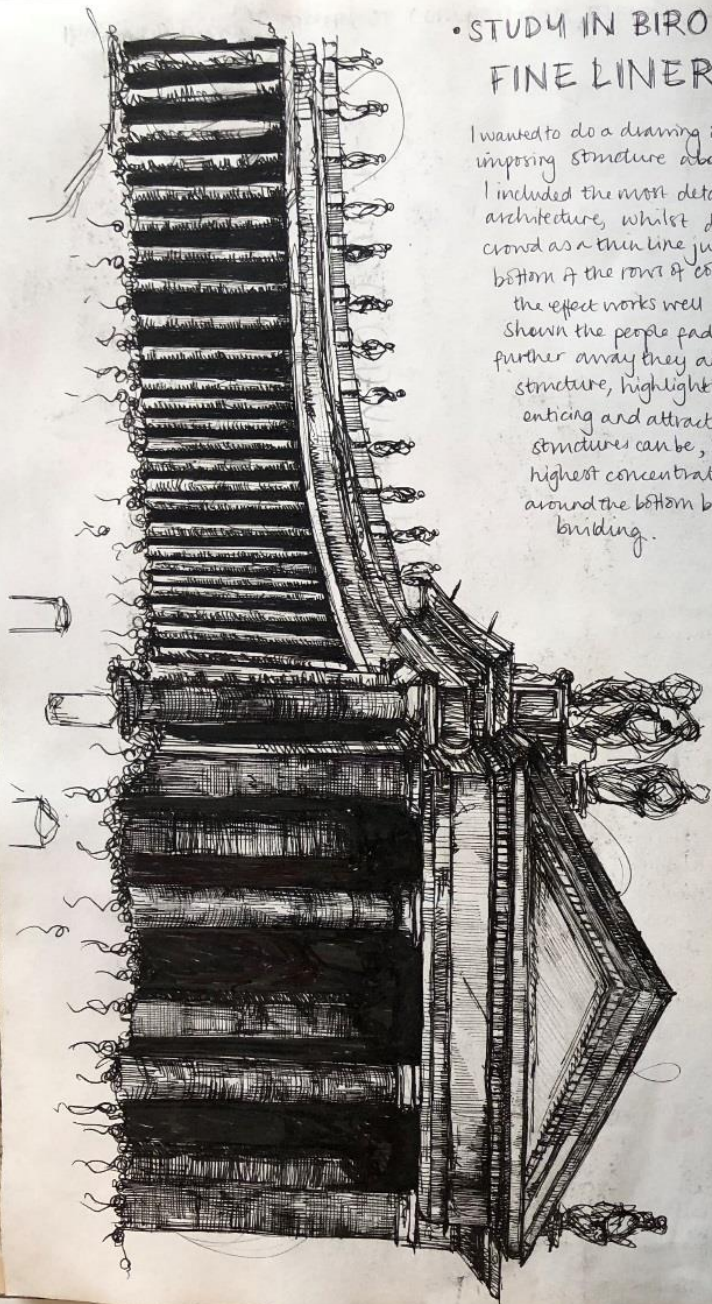 • STUDY IN BIRO
FINE LINER
I wanted to do a drawing i
imposing structure abo
I included the most deta
architecture, whilst d
crowd as a thin line ju
bottom of the rows of co
the effect works well
shown the people fad
further away they a
structure, highlight
enticing and attract
structures can be,
highest concentrat
around the bottom b
building.